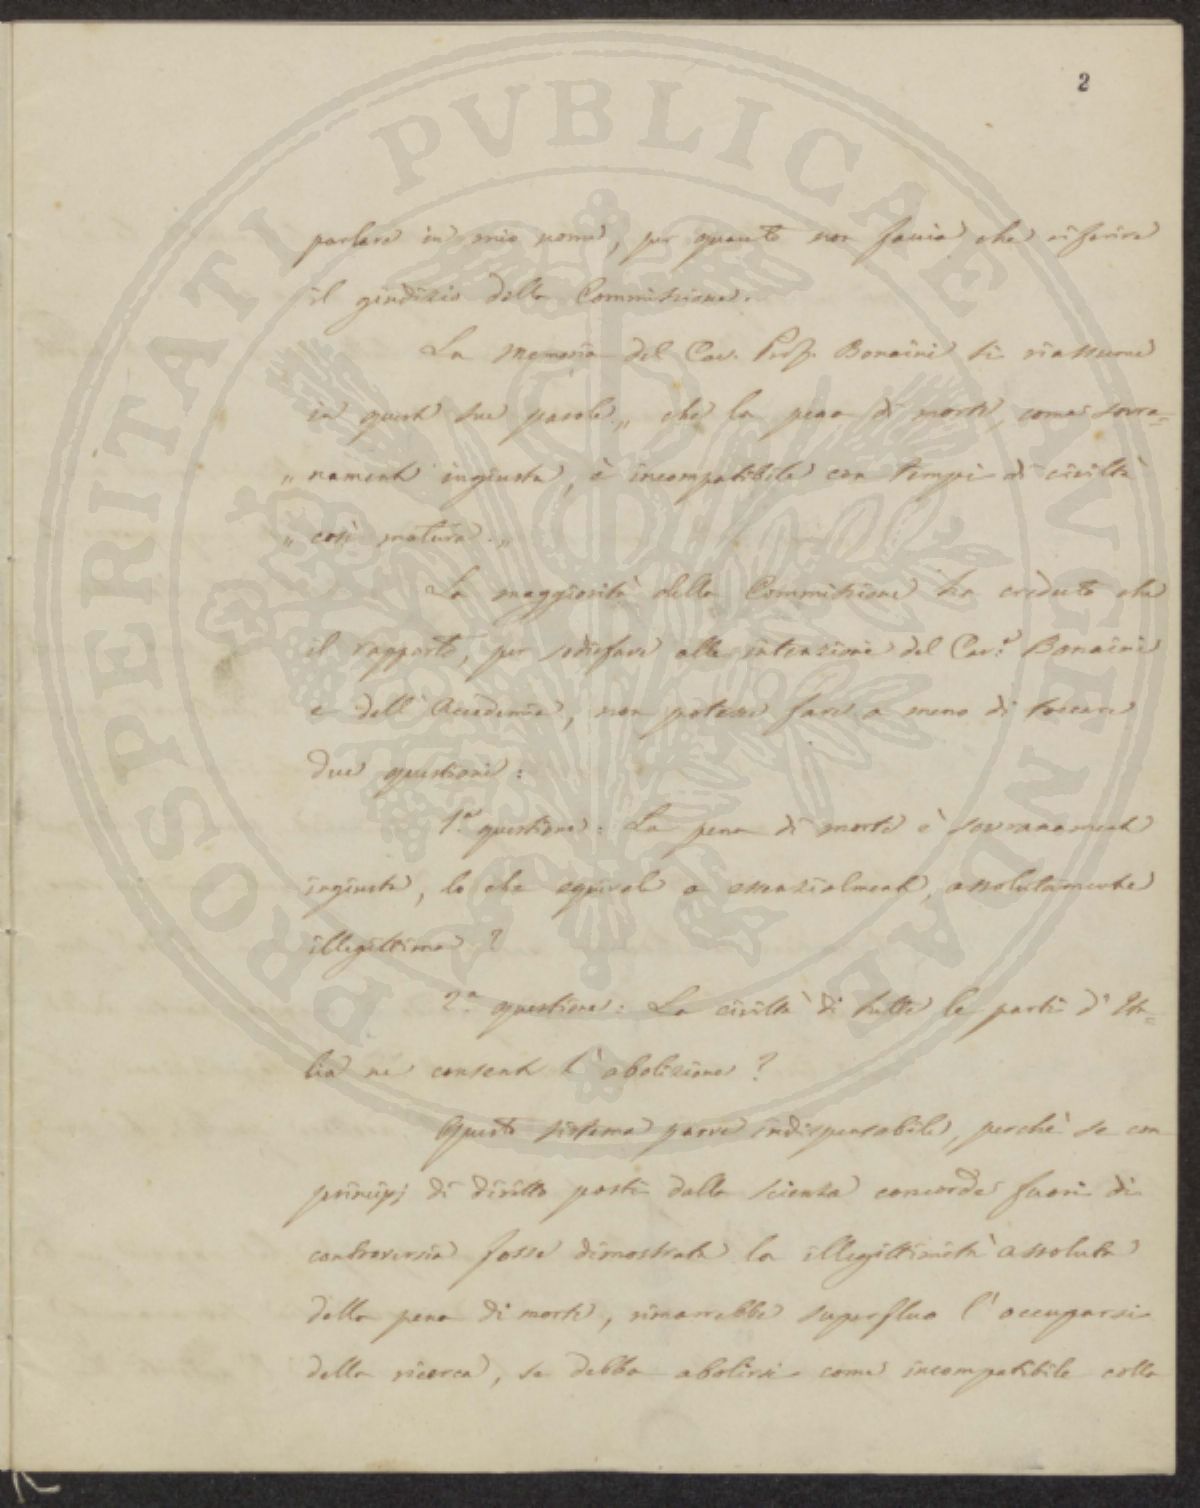 PROSPERITATI PVBLICAE AVGENDAE
2
parlare in mio nome, per quanto non faccia che riferire
il giudizio della Commissione.
La memoria del Cav. Prof. Bonaini si riassume
in queste sue parole „ che la pena di morte, come sovra=
„ namente ingiusta, è incompatibile con tempi di civiltà
„ così matura. „
La maggiorità della Commissione ha creduto che
il rapporto, per sodisfare alle intenzioni del Cav.e Bonaini
e dell' Accademia, non potesse fare a meno di toccare
due questioni:
1.a questione: La pena di morte è sovranamente
ingiusta, lo che equivale a essenzialmente, assolutamente
illegittima?
2.a questione: La civiltà di tutte le parti d' Ita=
lia ne consente l' abolizione?
Questo sistema parve indispensabile, perchè se con
principj di diritto posti dalla scienza concorde fuori di
controversia fosse dimostrata la illegittimità assoluta
della pena di morte, rimarrebbe superfluo l' occuparsi
della ricerca, se debba abolirsi come incompatibile colla